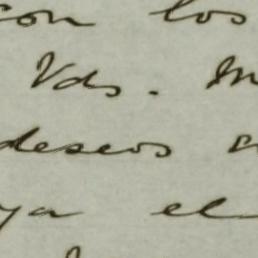 con los
Vds.
deseos
ya el